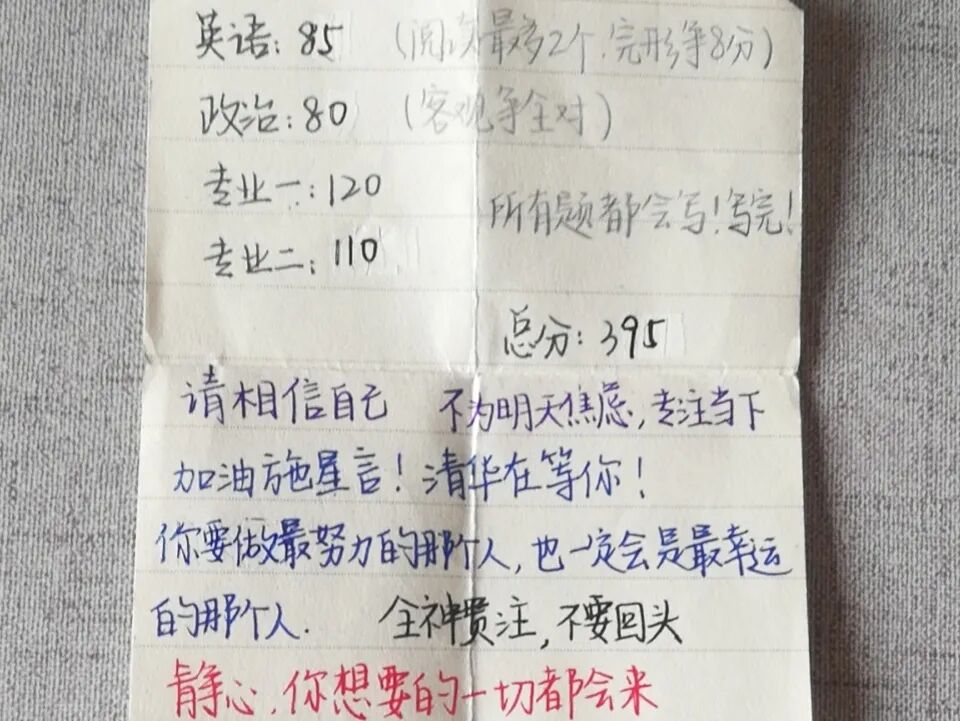 英语：85 （阅读最多2个.完形争8分）
政治：80 （客观争全对）
专业一：120
所有题都会写！写完！
专业二：110
总分：395
请相信自己 不为明天焦虑，专注当下
加油施星言！清华在等你！
你要做最努力的那个人，也一定会是最幸运
的那个人. 全神贯注，不要回头
静心，你想要的一切都会来